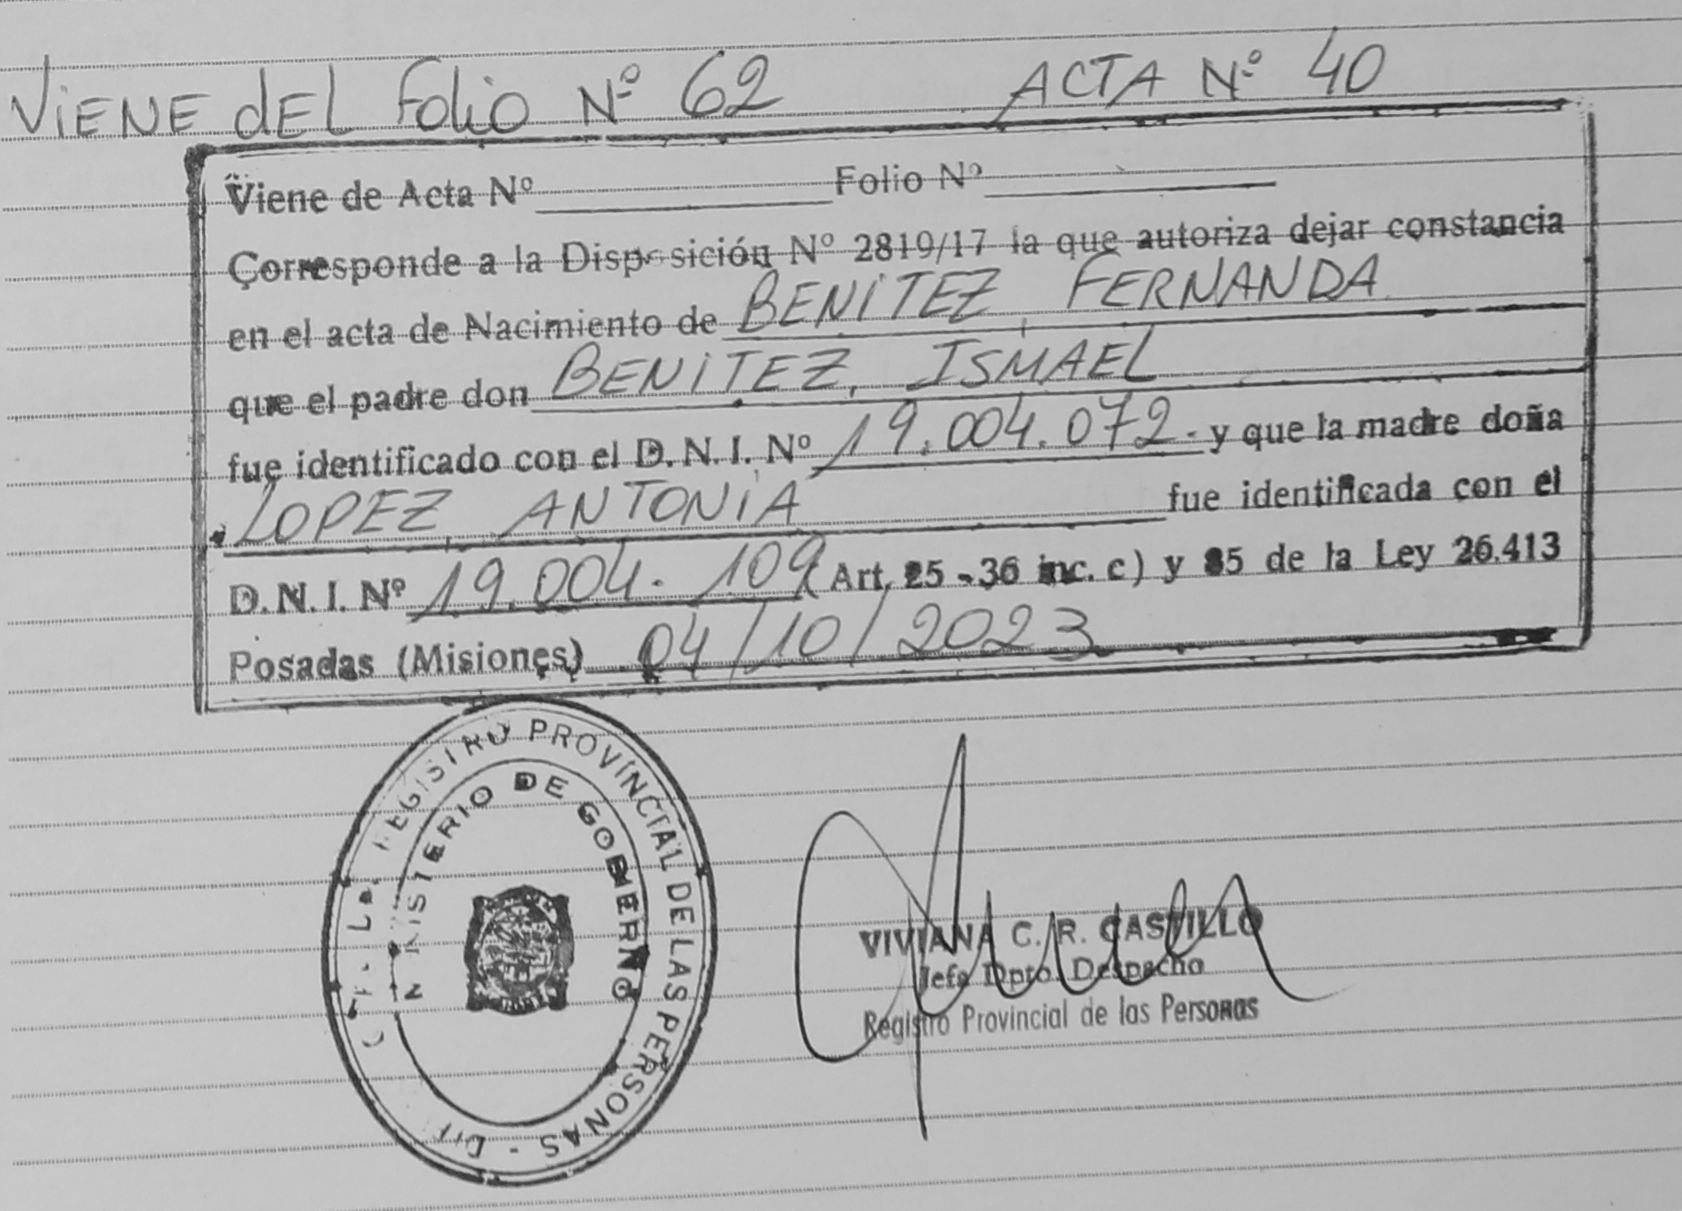 VIENE dEL Folio Nº 62 ACTA Nº 40
Viene de Acta Nº Folio Nº
Corresponde a la Disposición Nº 2819/17 la que autoriza dejar constancia
en el acta de Nacimiento de BENITEZ, FERNANDA
que el padre don BENITEZ, ISMAEL
fue identificado con el D.N.I. Nº 19.004.072.- y que la madre doña
LOPEZ, ANTONIA fue identificada con el
D.N.I. Nº 19.004.109 Art. 25 - 36 inc. c) y 85 de la Ley 26.413
Posadas (Misiones) 04/10/2023
REGISTRO PROVINCIAL DE LAS PERSONAS
MINISTERIO DE GOBIERNO
VIVIANA C. R. CASTILLO
Jefa Dpto. Despacho
Registro Provincial de las Personas